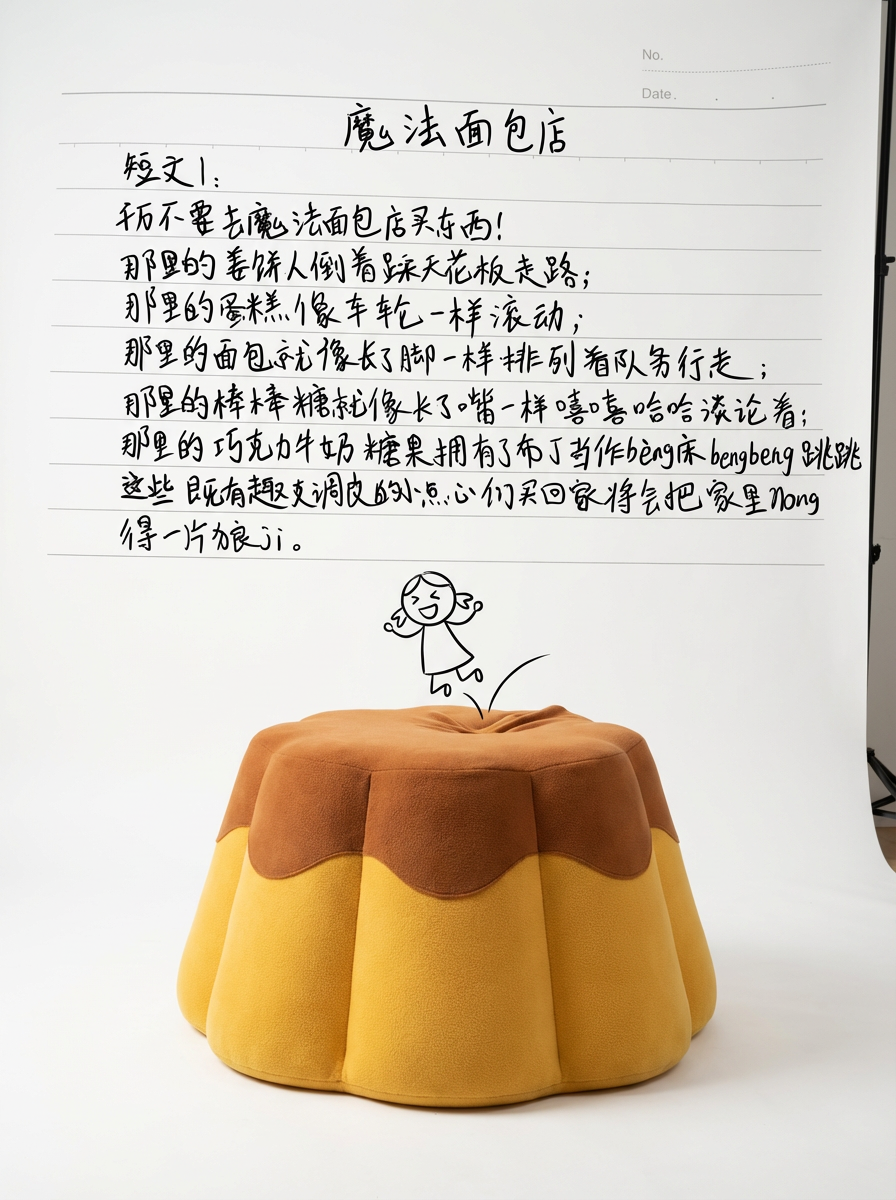 No.
Date.
魔法面包店
短文1:
千万不要去魔法面包店买东西!
那里的姜饼人倒着踩天花板走路;
那里的蛋糕像车轮一样滚动;
那里的面包就像长了脚一样排列着队务行走;
那里的棒棒糖就像长了嘴一样嘻嘻哈哈谈论着;
那里的巧克力牛奶糖果拥有了布丁当作bèng床bengbeng跳跳
这些既有趣又调皮的小点心们买回家将会把家里nong
得一片狼ji。